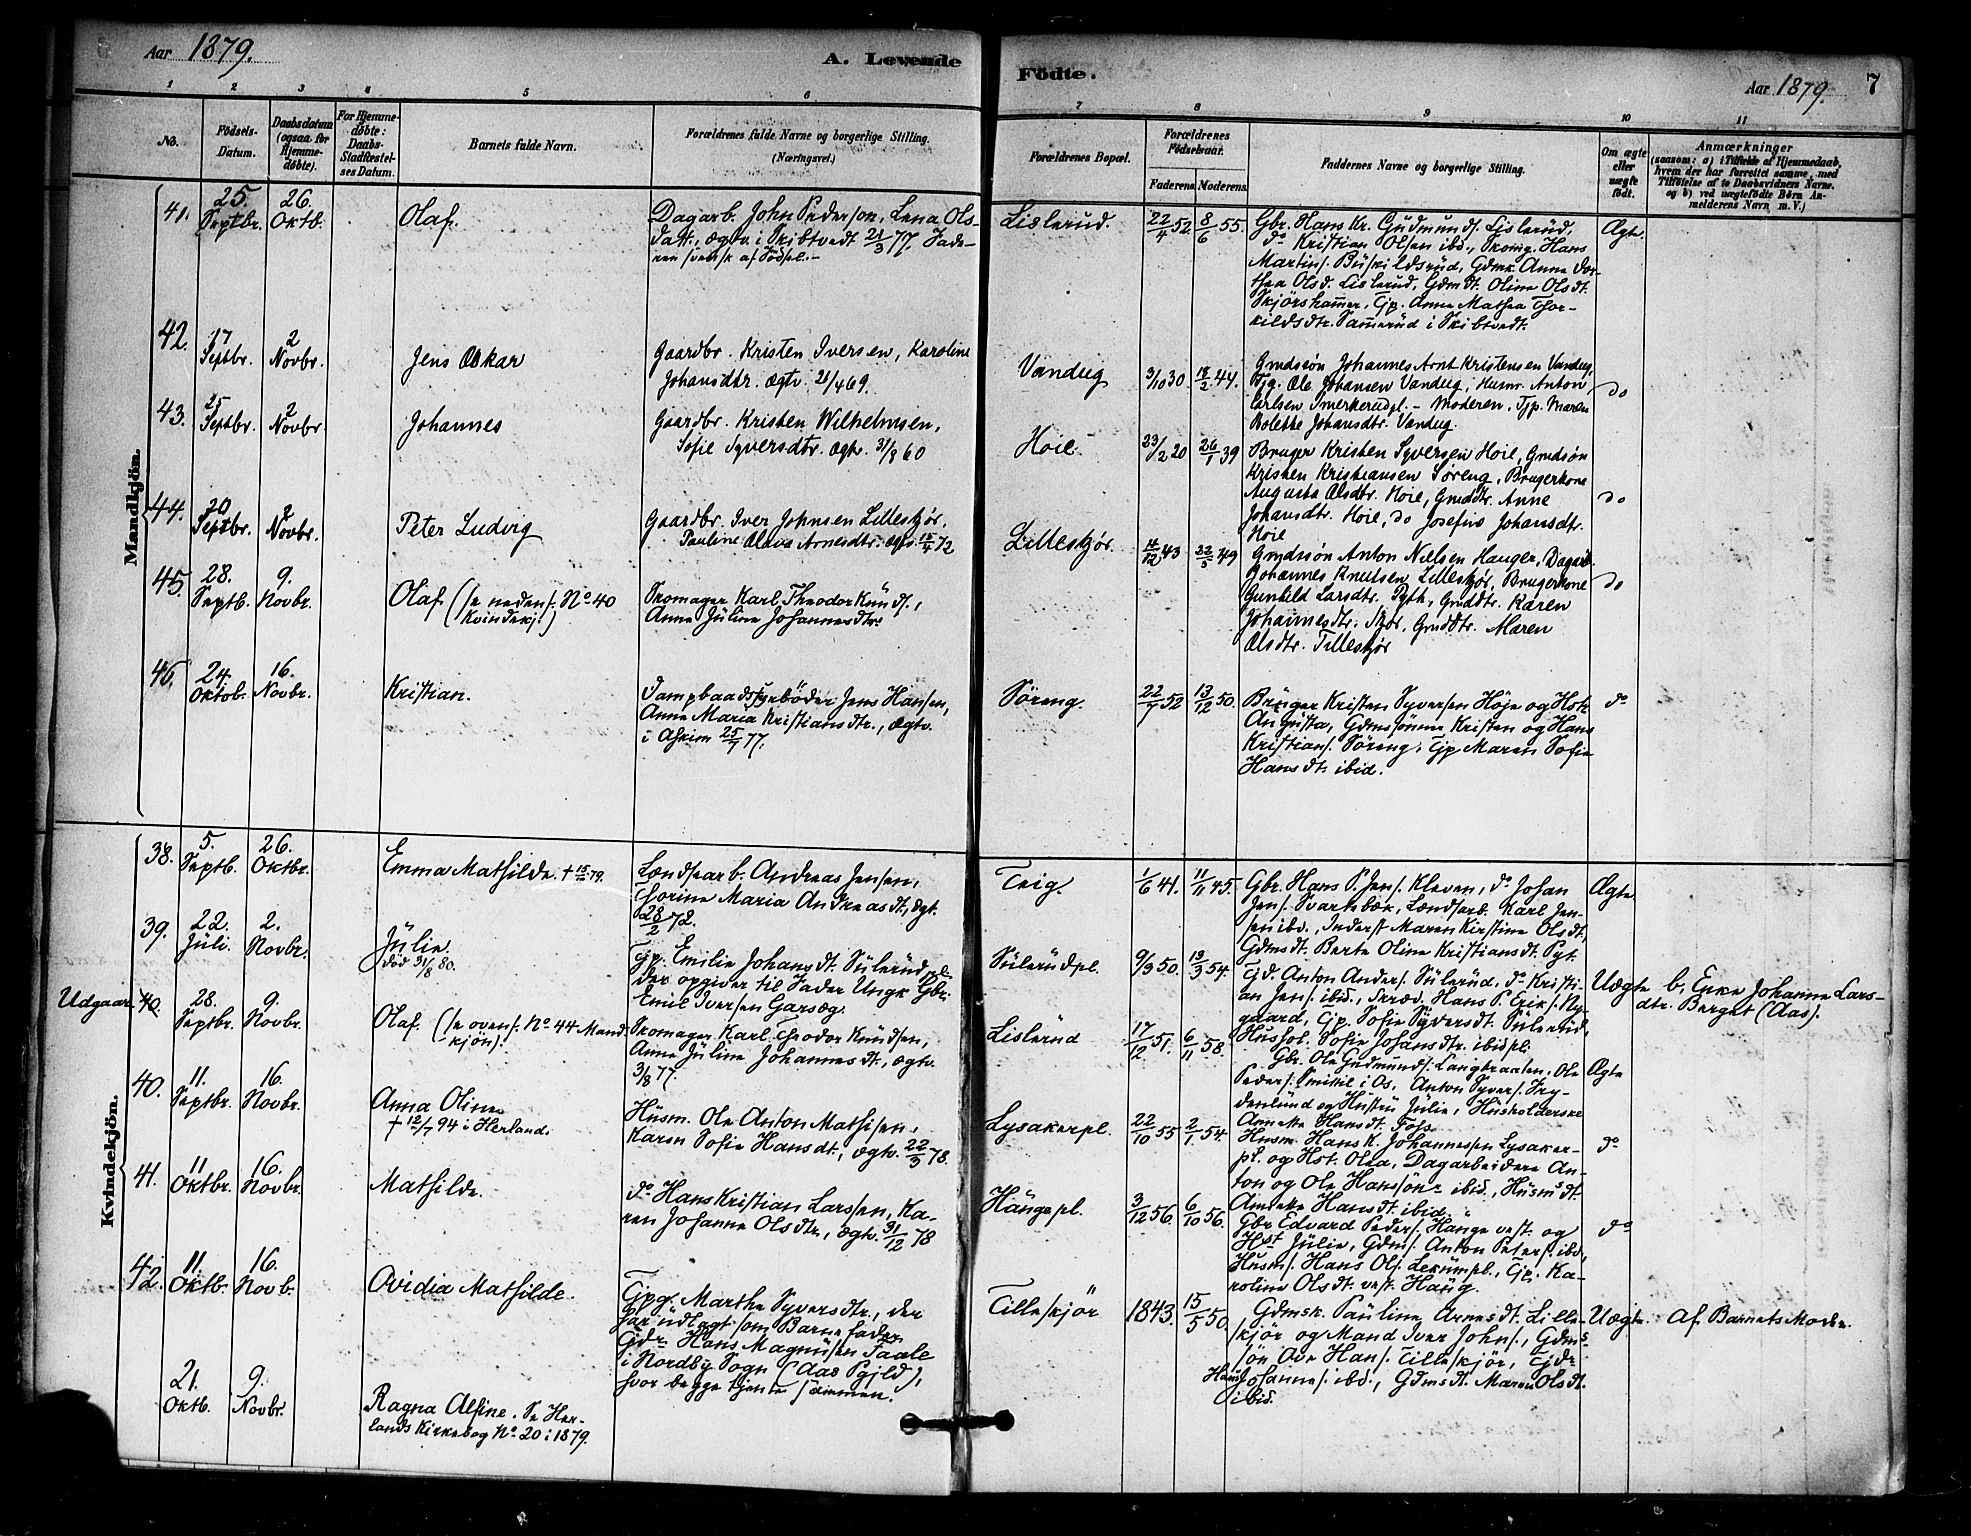 Aar 1879.
A. Levende
Födte.
Aar 1879.
7
1 2 3 4 5 6 7 8 9 10 11
No.
Födsels-
Datum.
Daabsdatum
(ogsaa for
Hjemme-
döbte).
For Hjemme-
döbte:
Daabs-
Stadfæstel-
ses Datum.
Barnets fulde Navn.
Forældrenes fulde Navne og borgerlige Stilling.
(Næringsvei.)
Forældrenes Bopæl.
Forældrenes
Födselsaar.
Faderens. Moderens.
Faddernes Navne og borgerlige Stilling.
Om ægte
eller
uægte
födt.
Anmærkninger
(saasom: a) i Tilfælde af Hjemmedaab,
hvem der har forrettet samme, med
Tilföielse af to Daabsvidners Navne.
og b) ved uægtefödte Börn An-
melderens Navn m. V.)
Mandkjön.
41.
25.
Septbr.
26.
Oktb.
Olaf.
Dagarb. John Pedersen, Lena Ols-
datt., ægtv. i Skibtvedt 21/3 77. Fade-
ren svensk af Födsel.-
Lislerud.
22/4 52.
8/6 55.
Gbr. Hans Kr. Gudmunds. Lislerud,
do Kristian Olsen ibd., Skomg. Hans
Martins. Buskildsrud, Gdmk. Anne Dor-
thea Olsd. Lislerud, Gdmdt. Oline Olsdt.
Skjörshamer, Tjp. Anne Mathea Thor-
kildsdtr. Samerud i Skibtvedt.
Ægte.
42.
17
Septbr.
2
Novbr.
Jens Oskar
Gaardbr. Kristen Iversen, Karoline
Johansdtr. ægtv. 21/4 69.
Vandug
3/10 30
18/2 44.
Gmdssøn Johannes Arnt Kristensen Vandug,
Tjg. Ole Johansen Vandug, Husm. Anton
Carlsen Smerkerudpl. - Moderen, Tjp. Maren
Bolette Johansdtr. Vandug.
do
43.
25
Septbr.
2
Novbr.
Johannes
Gaardbr. Kristen Wilhelmsen,
Sofie Syversdtr. ægtv. 31/8 60
Hoie
23/2 20
26/1 39
Bruger Kristen Syversen Hoie, Gmdsøn
Kristen Kristiansen Søreng, Brugerkone
Augusta Olsdtr. Hoie, Gmddtr. Anne
Johansdtr. Hoie, do Josefine Johansdtr.
Hoie
do
44.
20
Septbr.
2
Novbr.
Peter Ludvig
Gaardbr. Iver Johnsen Lilleskjør.
Pauline Olava Arnesdtr. ægtv. 15/4 72
Lilleskjør
14/12 43
22/5 49
Gmdssøn Anton Nielsen Hauger, Dagarb.
Johannes Knutsen Lilleskjør, Brugerkone
Gunhild Larsdtr. Pyth, Gmddtr. Karen
Johannesdtr. Skjør, Gmddtr. Maren
Olsdtr. Tilleskjør
do
45.
28.
Septb.
9.
Novbr.
Olaf (se nedenf. No. 40
Kvindekj.)
Skomager Karl Theodor Knuds.,
Anne Juline Johannesdtr.
46.
24.
Oktob.
16.
Novbr.
Kristian.
Dampbaadsfyrböder Jens Hansen,
Anne Maria Kristiansdtr., ægtv.
i Askim 25/7 77.
Söreng.
22/7 52
13/12 50.
Bruger Kristen Syversen Höje og Hst.
Augusta, Gdmssönne Kristen og Hans
Kristians. Söreng. Tjp Maren Sofie
Hansdt. ibid.
do
Kvindekjön.
38.
5.
Septb.
26.
Oktbr.
Emma Mathilde. + 15/12 79.
Lændsearb. Andreas Jensen,
Thorine Maria Andreasdt., ægt.
28/2 72.
Teig.
1/6 41.
11/11 45.
Gbr. Hans P. Jens. Kleven, do Johan
Jens. Svartebæk, Lændsarb. Karl Jen-
sen ibd., Inderst Maren Kirstine Olsdt,
Gdmsdt. Berte Oline Kristiansdt Pyt.
Ægte
39.
22.
Juli.
2.
Novbr.
Julie.
död 31/8 80.
Tjp. Emilie Johansdt. Sulerudpl.
der opgiver til Fader Ungk Gbr.
Emil Iversen Garsæg.
Sulerudpl.
9/3 50.
13/3 54.
Tjd. Anton Anders. Sulerud, do Kristi-
an Jens. ibid., Skræd. Hans P. Erik. Ny-
gaard, Tjp. Sofie Syversdt. Sulerud,
Hushol. Sofie Johansdtr. ibid pl.
Uægte
b, Enke Johanne Lars-
dtr. Berget (Aas).
Udgaar 40.
28.
Septbr.
9.
Novbr.
Olaf (se ovenf. No. 44 Mand
kjön).
Skomager Karl Theodor Knudsen,
Anne Juline Johannesdt., ægtv.
3/8 77.
Lislerud
17/12 51.
6/11 58.
Gbr. Ole Gudmunds. Langbraaten, Ole
Peders. Smikil i Os. Anton Syvers. Fry-
denlund og Hustru Julie, Husholderske
Annette Hansdt. Foss
Ægte
40.
11.
Septbr.
16.
Novbr.
Anna Oline
+ 12/7 94 i Herland.
Husm. Ole Anton Mathisen,
Karen Sofie Hansdt., ægtv. 22/3 78.
Lysakerpl.
22/10 55
2/1 54.
Husm. Hans K. Johannessen Lysaker-
pl. og Hst. Olea, Dagarbeidere An-
ton og Ole Hanssön ibid., Husmsdt
Anneke Hansdt. ibid.
do
41.
11
Oktbr.
16.
Novbr.
Mathilde.
do Hans Kristian Larssen, Ka-
ren Johanne Olsdtr., ægtv. 31/12 78
Haugepl.
3/12 56.
6/10 56.
Gbr Edvard Peders. Hauge vest. og
Hst Julie, Gdms. Anton Peters. ibd,
Husms. Hans Ols. Lerumpl., Tjp. Ka-
roline Olsdt. vest. Haug.
do
42.
11.
Oktbr.
16.
Novb.
Ovidia Mathilde.
Tjpg. Marthe Syversdtr., der
har udlagt som Barnefader
Tjdr Hans Magnusen Taale
i Nordby Sogn (Aas Pgjld),
hvor begge tjente sammen.
Tilleskjör
1843.
15/5 50.
Gdmsk. Pauline Arnesdt. Lille-
skjör og Mand Iver Johns., Gdms-
sön Ove Hans. Tilleskjör, Tjdr
Hans Johannes. ibd., Gdmsdt. Maren Olsdt.
ibid.
Uægte.
Af Barnets Moder.
21.
Oktb.
9.
Novbr.
Ragna Alfine. Se Her-
lands Kirkebog No. 20 i 1879.